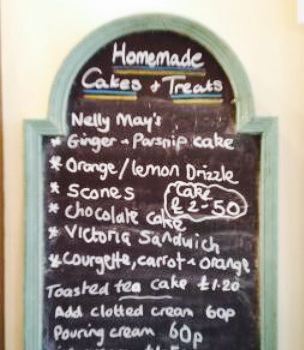 Homemade
Cakes + Treats
Nelly May's
* Ginger + Parsnip cake
* Orange/lemon Drizzle
* Scones
Cake
£2-50
* chocolate cake
* Victoria Sandwich
* Courgette, carrot + orange
Toasted tea cake £1.20
Add clotted cream 60p
Pouring cream 60p